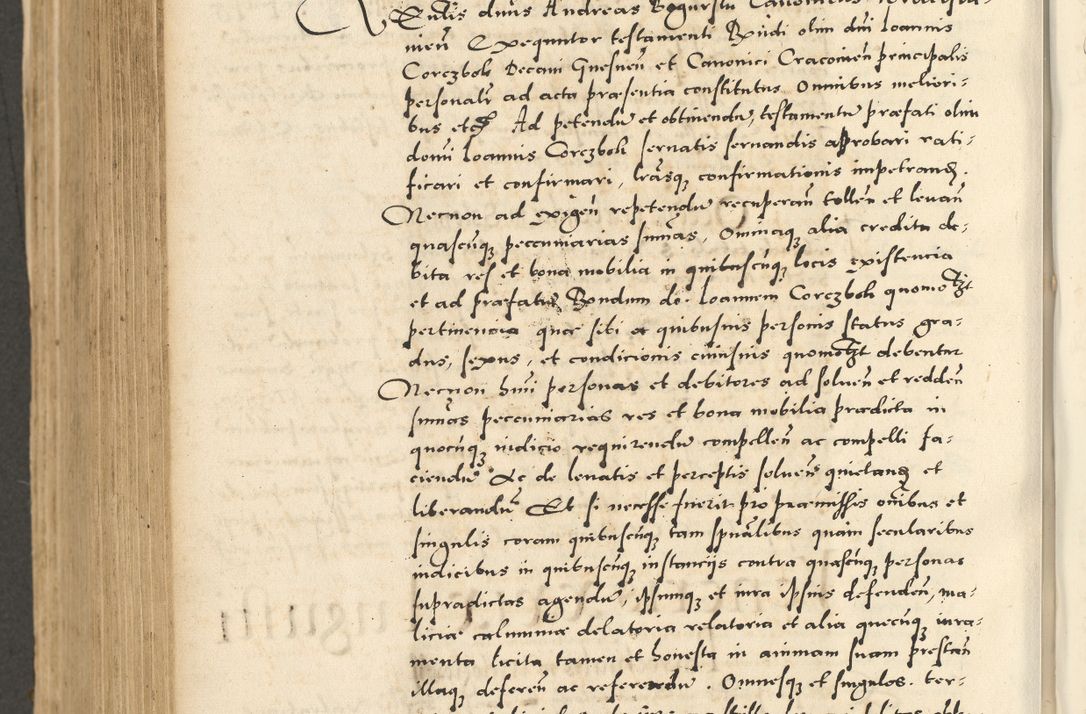 dnus Andreas Canonicus
nien Exequutor testamenti Rndi olim dni Ioannis
Corczbok Decani Gnesnen et Canonici Cracovien principalis
personalr ad acta præsentia constitutus Omnibus meliori-
bus etc Ad petendu et obtinendu, testamentu præfati olim
domi Ioannis Corczbok servatis servandis approbari rati-
ficari et confirmari, lrasq confirmationis impetrand.
Necnon ad exigen repetendu recuperan tollen et levan
quascunq pecuniarias sumas, Omniaq alia credita de-
bita res et bona mobilia in quibuscunq locis existencia
et ad præfatu Rendum do. Ioannem Corczbok quomolzt
pertinencia quæ sibi a quibusvis personis status gra-
dus, sexus, et condicionis cuiusvis quomolzt debentur
Necnon hmi personas et debitores ad solven et redden
sumas pecuniarias res et bona mobilia prædicta in
quocunq iudicio requirendu compellen ac compelli fa-
ciendu Ac de levatis et perceptis solven quietand et
liberandu Et si necesse fuerit pro præmissis oibus et
singulis coram quibuscunq tam spualibus quam secularibus
iudicibus in quibuscunq instancijs contra quascunq personas
supradictas agendu, ipsumq et iura ipsius defenden, ma-
liciæ calumniæ delatoria relatoria et alia quecunq iura-
menta licita tamen et honesta in animam suam prestan
illaq deferen ac referendu. Omnesq et singulos. ter-